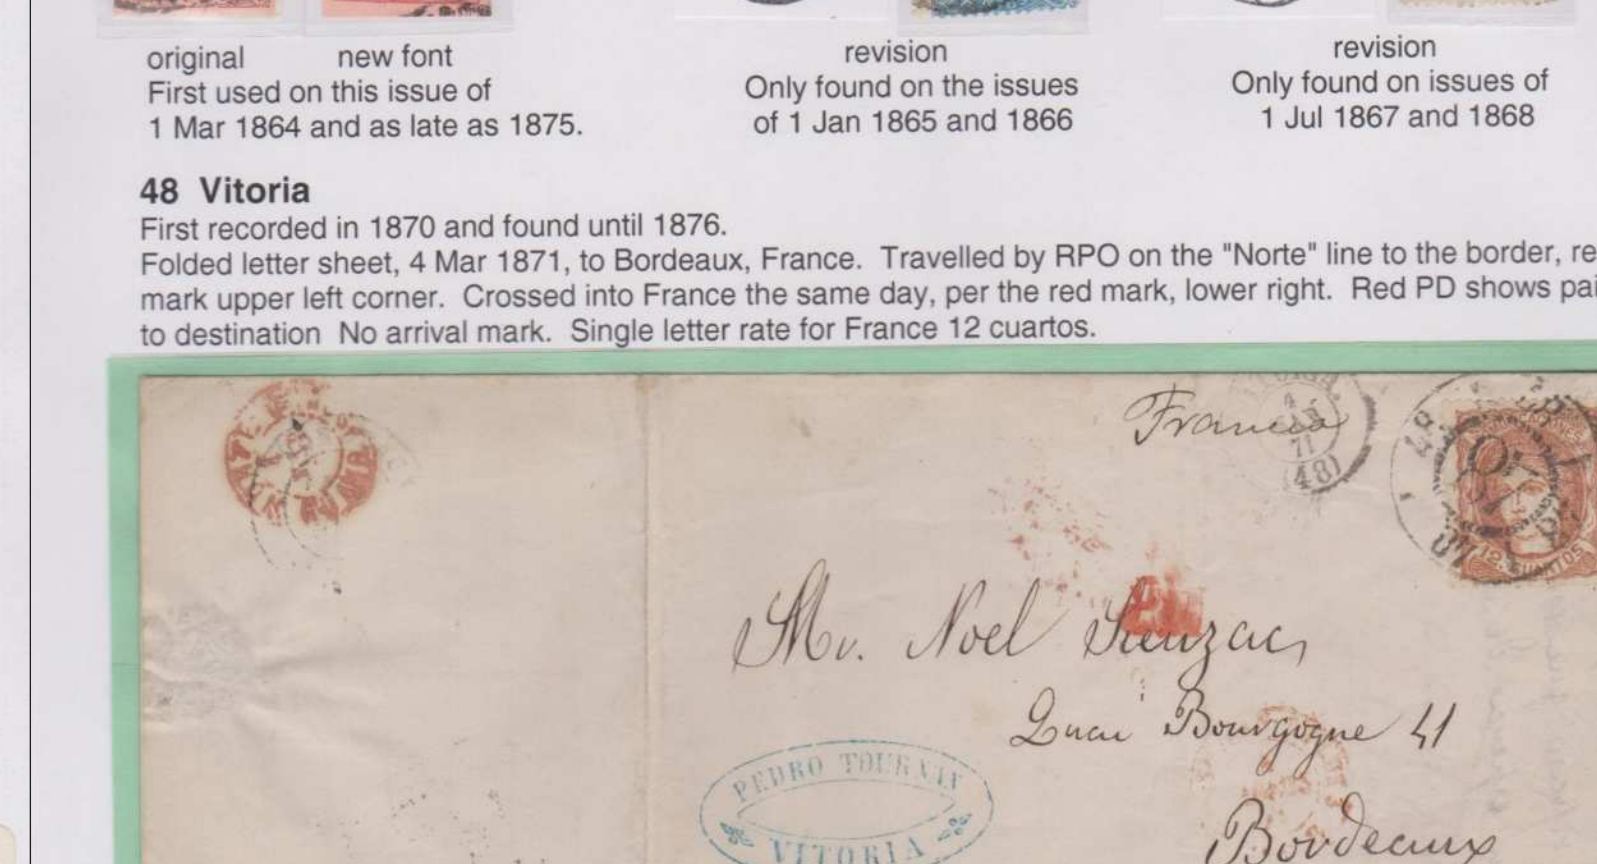 original new font
First used on this issue of
1 Mar 1864 and as late as 1875.
revision
Only found on the issues
of 1 Jan 1865 and 1866
revision
Only found on issues of
1 Jul 1867 and 1868
48 Vitoria
First recorded in 1870 and found until 1876.
Folded letter sheet, 4 Mar 1871, to Bordeaux, France. Travelled by RPO on the "Norte" line to the border, re
mark upper left corner. Crossed into France the same day, per the red mark, lower right. Red PD shows pai
to destination No arrival mark. Single letter rate for France 12 cuartos.
Francia
4
71
(48)
12 CUARTOS
Mr. Noel
Quai Bourgogne 41
Bordeaux
PEDRO TOURNAY
VITORIA